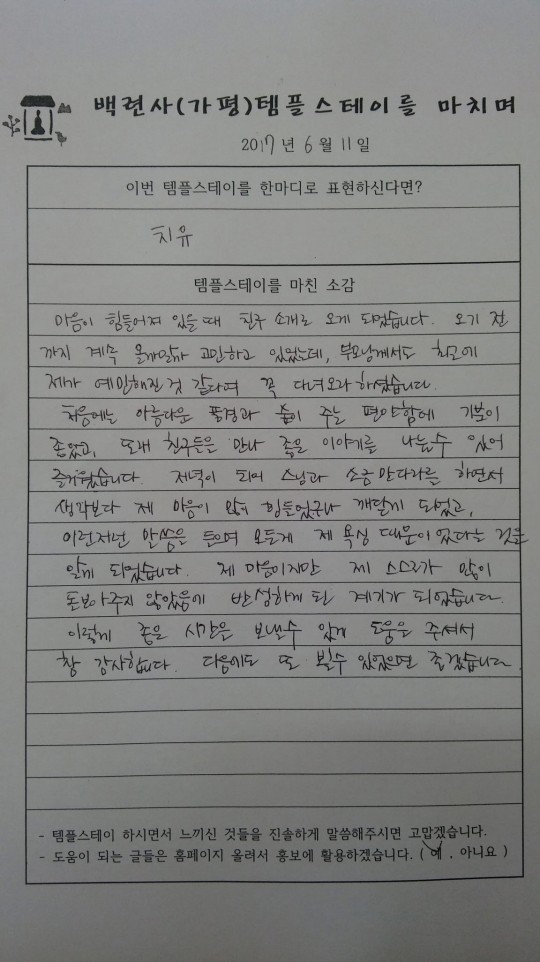 백련사(가평)템플스테이를 마치며
2017년 6월 11일
이번 템플스테이를 한마디로 표현하신다면?
치유
템플스테이를 마친 소감
마음이 힘들어져 있을 때 친구 소개로 오게 되었습니다. 오기 전
까지 계속 올까말까 고민하고 있었는데, 부모님께서도 최근에
제가 예민해진 것 같다며 꼭 다녀오라 하셨습니다.
처음에는 아름다운 풍경과 숲이 주는 편안함에 기분이
좋았고, 또래 친구들을 만나 좋은 이야기를 나눌수 있어
즐거웠습니다. 저녁이 되어 스님과 소금만다라를 하면서
생각보다 제 마음이 많이 힘들었구나 깨닫게 되었고,
이런저런 말씀을 들으며 모든게 제 욕심 때문이었다는 것을
알게 되었습니다. 제 마음이지만 제 스스로가 많이
돌보아주지 않았음에 반성하게 된 계기가 되었습니다.
이렇게 좋은 시간을 보낼수 있게 도움을 주셔서
참 감사합니다. 다음에도 또 뵐수 있었으면 좋겠습니다.
- 템플스테이 하시면서 느끼신 것들을 진솔하게 말씀해주시면 고맙겠습니다.
- 도움이 되는 글들은 홈페이지 올려서 홍보에 활용하겠습니다. ( 예 , 아니요 )